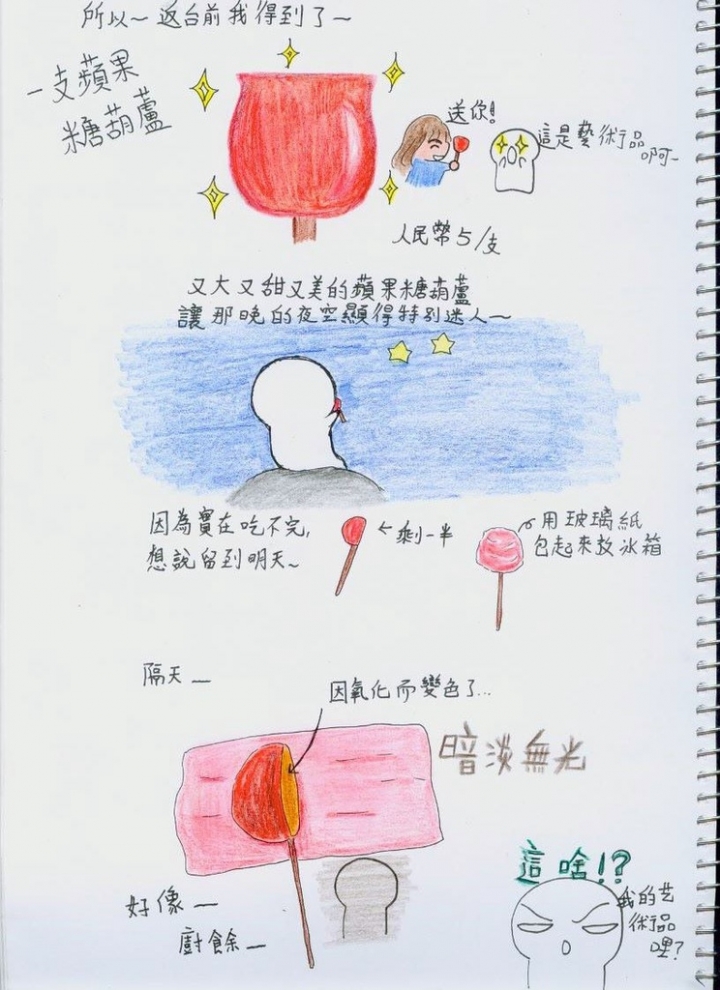 所以~返台前我得到了~
一支蘋果
糖葫蘆
送你!
這是藝術品
啊~
人民幣5/支
又大又甜又美的蘋果糖葫蘆
讓那晚的夜空顯得特別迷人~
因為實在吃不完,
想說留到明天~
←剩一半
用玻璃紙
包起來放冰箱
隔天—
因氧化而變色了...
暗淡無光
好像—
廚餘—
這啥!?
我的艺
術品
哩?